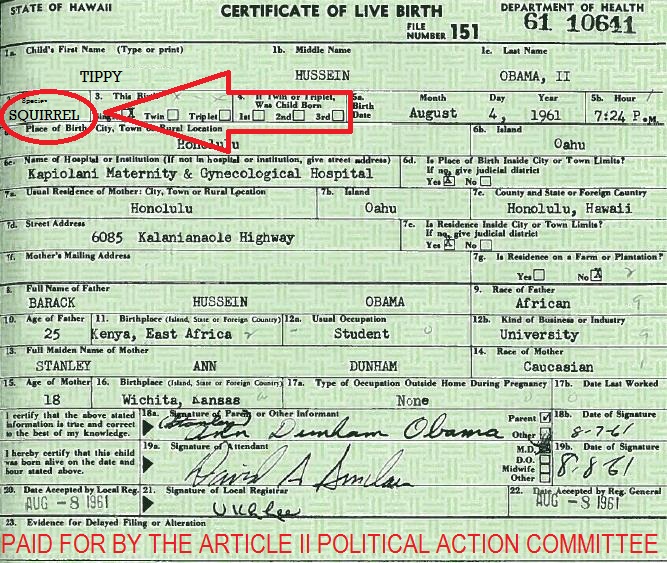 STATE OF HAWAII CERTIFICATE OF LIVE BIRTH DEPARTMENT OF HEALTH
FILE NUMBER 151 61 10641
1a. Child's First Name (Type or print) 1b. Middle Name 1c. Last Name
TIPPY HUSSEIN OBAMA, II
Species 3. This Birth 4. If Twin or Triplet, Was Child Born 5a. Birth Date Month Day Year 5b. Hour
SQUIRREL Twin Triplet 1st 2nd 3rd August 4, 1961 7:24 P.M.
Place of Birth: City, Town or Rural Location 6b. Island
Honolulu Oahu
6c. Name of Hospital or Institution (If not in hospital or institution, give street address) 6d. Is Place of Birth Inside City or Town Limits? If no, give judicial district
Kapiolani Maternity & Gynecological Hospital Yes X No
7a. Usual Residence of Mother: City, Town or Rural Location 7b. Island 7c. County and State or Foreign Country
Honolulu Oahu Honolulu, Hawaii
7d. Street Address 7e. Is Residence Inside City or Town Limits? If no, give judicial district
6085 Kalanianaole Highway Yes X No
7f. Mother's Mailing Address 7g. Is Residence on a Farm or Plantation?
Yes No X
8. Full Name of Father 9. Race of Father
BARACK HUSSEIN OBAMA African
10. Age of Father 11. Birthplace (Island, State or Foreign Country) 12a. Usual Occupation 12b. Kind of Business or Industry
25 Kenya, East Africa Student University
13. Full Maiden Name of Mother 14. Race of Mother
STANLEY ANN DUNHAM Caucasian
15. Age of Mother 16. Birthplace (Island, State or Foreign Country) 17a. Type of Occupation Outside Home During Pregnancy 17b. Date Last Worked
18 Wichita, Kansas None
I certify that the above stated information is true and correct to the best of my knowledge. 18a. Signature of Parent or Other Informant Parent Other 18b. Date of Signature
(Stanley) Ann Dunham Obama 8-7-61
I hereby certify that this child was born alive on the date and hour stated above. 19a. Signature of Attendant M.D. D.O. Midwife Other 19b. Date of Signature
David A Sinclair 8-8-61
20. Date Accepted by Local Reg. 21. Signature of Local Registrar 22. Date Accepted by Reg. General
AUG -8 1961 U K L Lee AUG -8 1961
23. Evidence for Delayed Filing or Alteration
PAID FOR BY THE ARTICLE II POLITICAL ACTION COMMITTEE